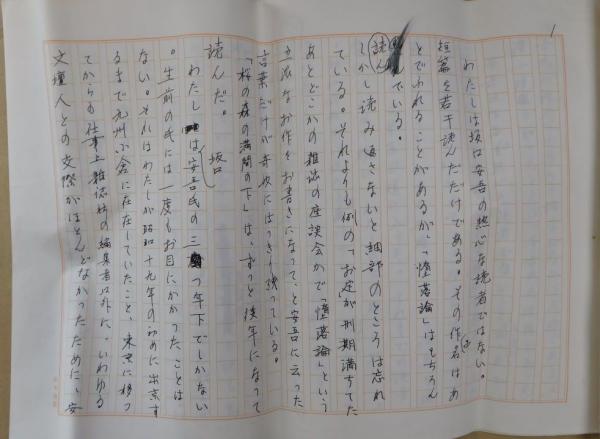 1
わたしは坂口安吾の熱心な読者ではない。
短篇を若干読んだだけである。その作品はあ
とでふれることがあるが、「堕落論」はもちろん
読んでいる。
しかし読み返さないと細部のところは忘れ
ている。それよりも例の「お定が刑期満ちてた
あとどこかの雑誌の座談会かで「堕落論」という
立派なお作をお書きになって、と安吾に云った
言葉だけが奇妙にはっきり残っている。
「桜の森の満開の下」は、ずっと後年になって
読んだ。
わたしは坂口安吾氏の三つ年下でしかない
。生前の氏には一度もお目にかかったことは
ない。それはわたしが昭和二十九年の初めに出京す
るまで九州小倉に在住していたこと、東京に移っ
てからも仕事上雑誌社の編集者以外に、いわゆる
文壇人との交際がほとんどなかったために、安